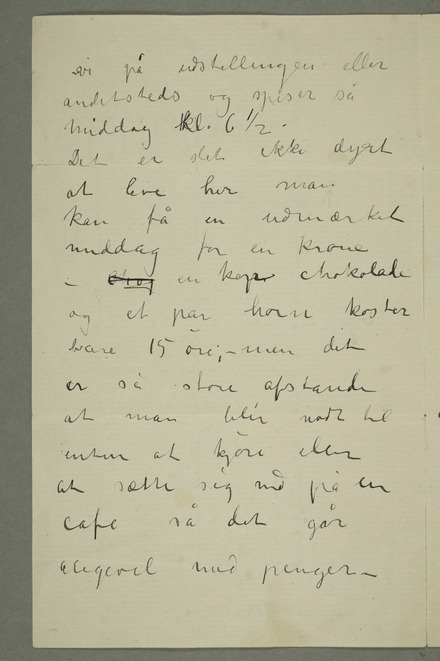 vi på udstellingen eller
andetsteds og spiser så
middag kl. 6 1/2.
Det er slet ikke dyrt
at leve her man
kan få en udmærket
middag for en krone
– en kop chokolade
og et par horn koster
bare 15 öre; – men det
er så store afstande
at man blir nødt til
enten at kjöre eller
at sætte sig ind på en
cafe så det går
aligevel med penger –